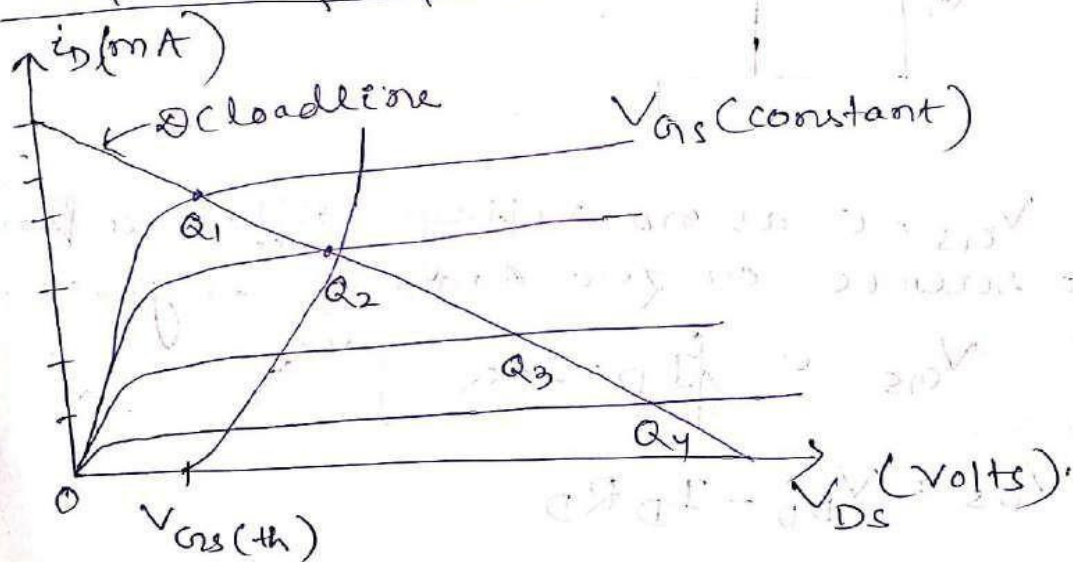 iD(mA)
DC loadline
VGS (constant)
Q1
Q2
Q3
Q4
O
VGS(th)
VDS (Volts).